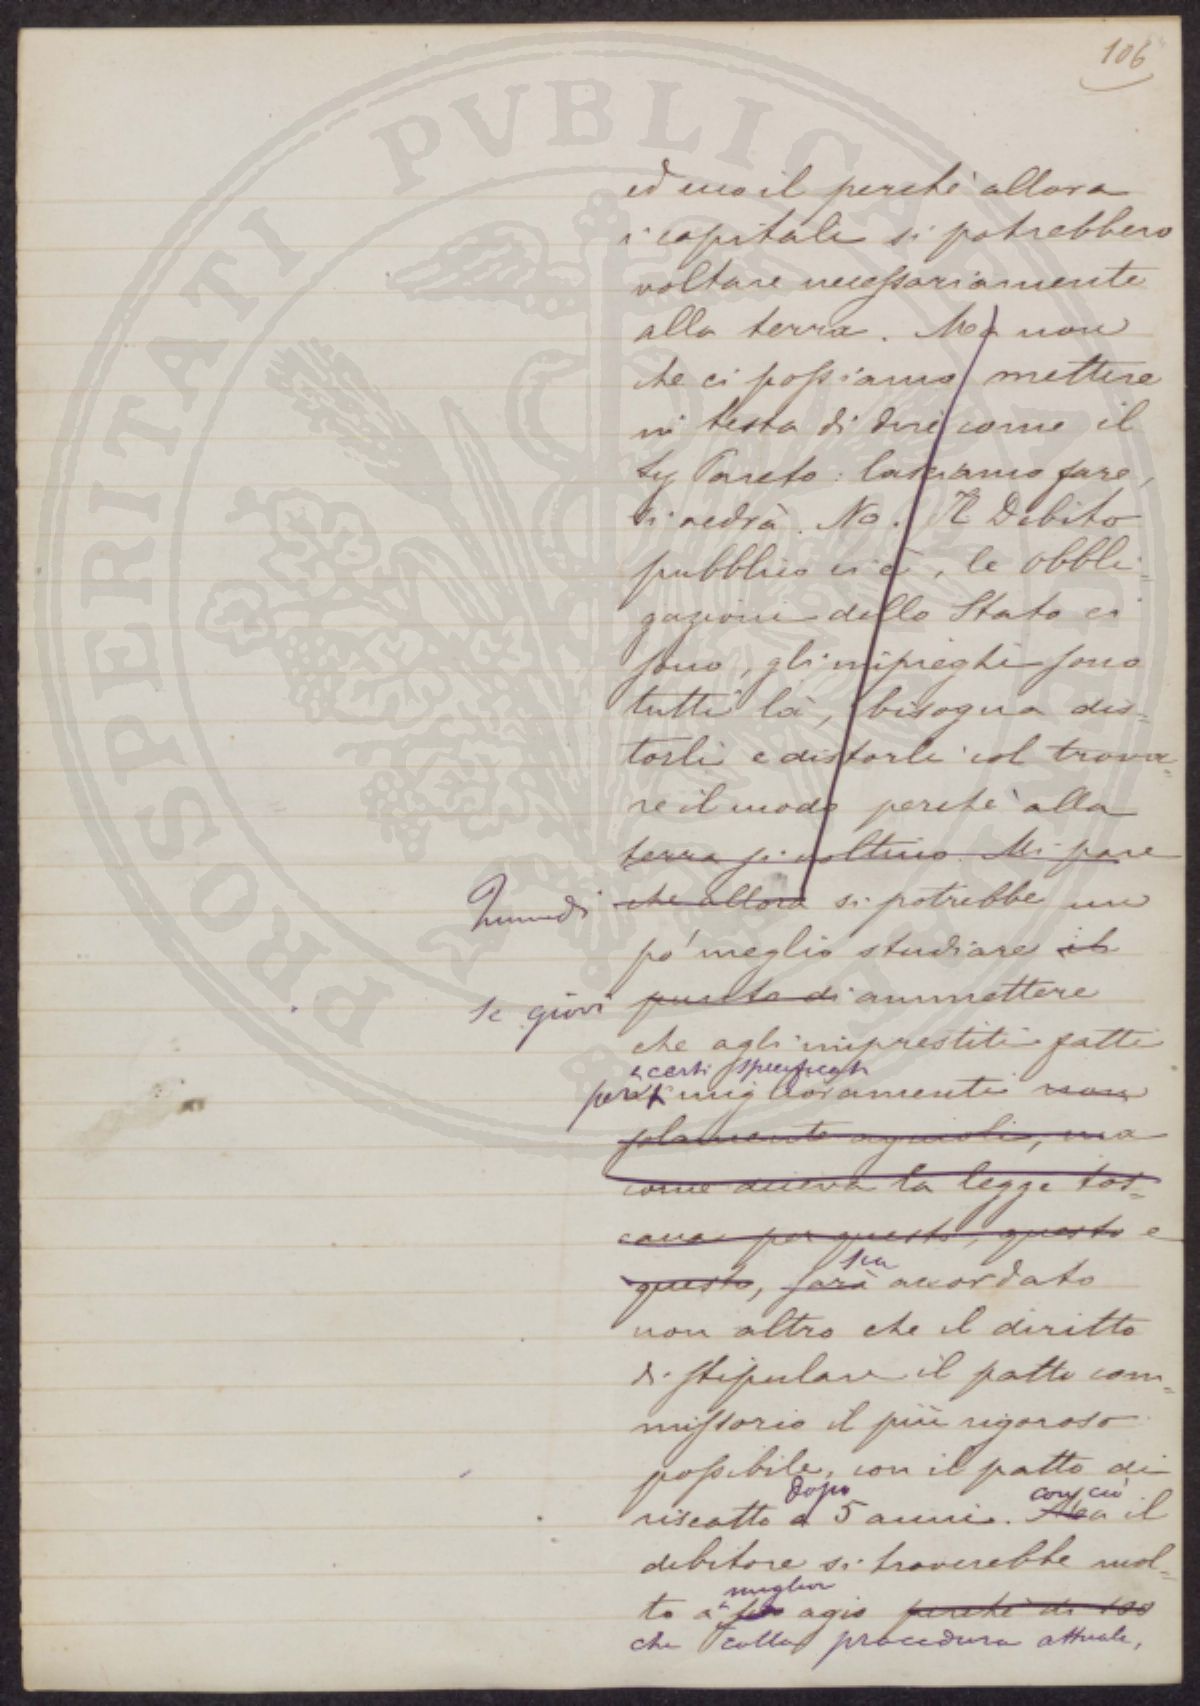 106
ed ecco il perchè allora
i capitali si potrebbero
voltare necessariamente
alla terra. Ma non
che ci possiamo mettere
in testa di dire come il
Sig Pareto: lasciamo fare,
si vedrà. No. Il Debito
pubblico ci è, le Obbli-
gazioni dello Stato ci
sono, gli impieghi sono
tutti là, bisogna dis-
torli e distorli col trova-
re il modo perchè alla
terra si voltino. Mi pare
Quindi che allora si potrebbe un
po' meglio studiare il
se giovi punto di ammettere
che agli imprestiti fatti
certi specificati
per i miglioramenti non
solamente agricoli, ma
come diceva la legge tos-
cana per questo, questo e
sia
questo, sarà accordato
non altro che il diritto
di stipulare il patto com-
missorio il più rigoroso
possibile, con il patto di
dopo con ciò
riscatto a 5 anni. Ma il
debitore si troverebbe mol-
miglior
to a suo agio perchè di 100
che colla procedura attuale,
PROSPERITATI PVBLICAE